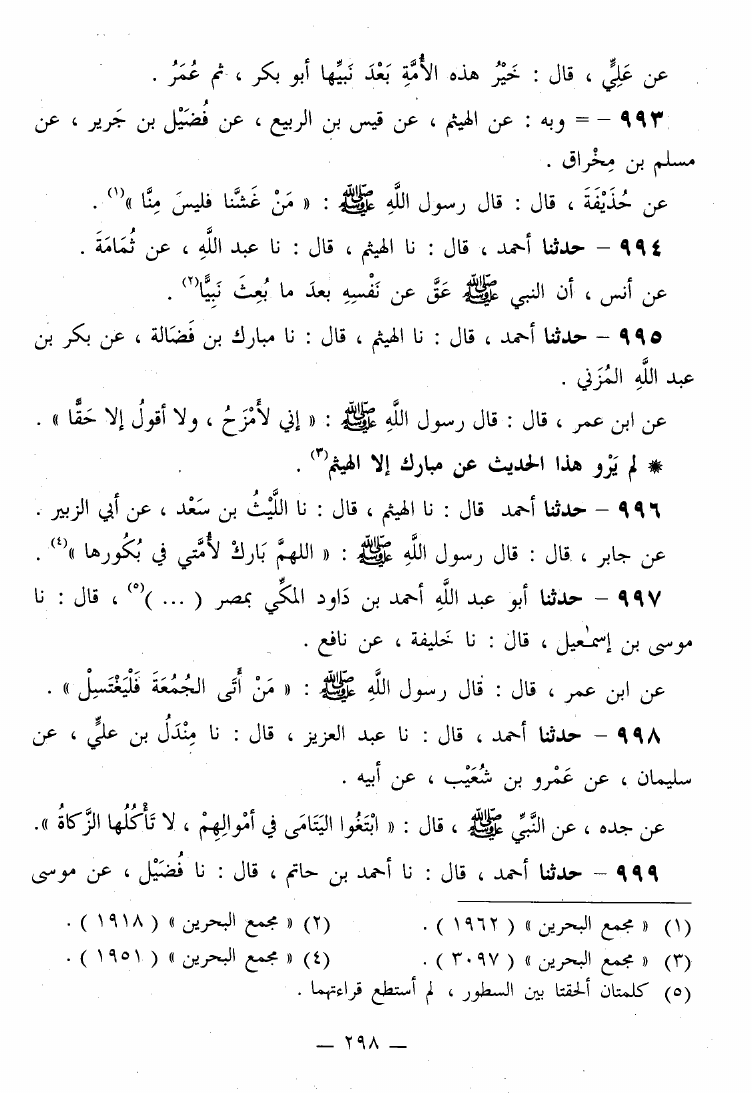 عن عَلِيٍّ ، قال : خَيْرُ هذه الأُمَّةِ بَعْدَ نَبِيِّها أبو بكر ، ثم عُمَرُ .
٩٩٣ – = وبه : عن الهيثم ، عن قيس بن الربيع ، عن فُضَيْل بن جَرير ، عن
مسلم بن مِخْراق .
عن حُذَيْفَةَ ، قال : قال رسول اللَّهِ ﷺ : « مَنْ غَشَّنا فليسَ مِنَّا »(١) .
٩٩٤ – حدثنا أحمد ، قال : نا الهيثم ، قال : نا عبد اللَّهِ ، عن ثُمَامَةَ .
عن أنس ، أن النبي ﷺ عَقَّ عن نَفْسِهِ بعدَ ما بُعِثَ نَبِيًّا(٢) .
٩٩٥ – حدثنا أحمد ، قال : نا الهيثم ، قال : نا مبارك بن فَضَالة ، عن بكر بن
عبد اللَّهِ المُزَني .
عن ابن عمر ، قال : قال رسول اللَّهِ ﷺ : « إني لأَمْزَحُ ، ولا أقولُ إلا حَقًّا » .
* لم يَرْوِ هذا الحديث عن مبارك إلا الهيثم(٣) .
٩٩٦ – حدثنا أحمد قال : نا الهيثم ، قال : نا اللَّيْثُ بن سَعْد ، عن أبي الزبير .
عن جابر ، قال : قال رسول اللَّهِ ﷺ : « اللهمَّ بَارِكْ لأُمَّتي في بُكُورها »(٤) .
٩٩٧ – حدثنا أبو عبد اللَّهِ أحمد بن دَاود المكِّي بمصر ( ... )(٥) ، قال : نا
موسى بن إسمٰعيل ، قال : نا خَليفة ، عن نافع .
عن ابن عمر ، قال : قال رسول اللَّهِ ﷺ : « مَنْ أَتَى الجُمُعَةَ فَلْيَغْتَسِلْ » .
٩٩٨ – حدثنا أحمد ، قال : نا عبد العزيز ، قال : نا مِنْدَلُ بن عليٍّ ، عن
سليمان ، عن عَمْرو بن شُعَيْب ، عن أبيه .
عن جده ، عن النَّبيِّ ﷺ ، قال : « ابْتَغُوا اليَتَامَى في أمْوالِهِمْ ، لا تَأْكُلُها الزَّكاةُ ».
٩٩٩ – حدثنا أحمد ، قال : نا أحمد بن حاتم ، قال : نا فُضَيْل ، عن موسى
(١) « مجمع البحرين » ( ١٩٦٢ ) . (٢) « مجمع البحرين » ( ١٩١٨ ) .
(٣) « مجمع البحرين » ( ٣٠٩٧ ) . (٤) « مجمع البحرين » ( ١٩٥١ ) .
(٥) كلمتان ألحقتا بين السطور ، لم أستطع قراءتهما .
– ٢٩٨ –